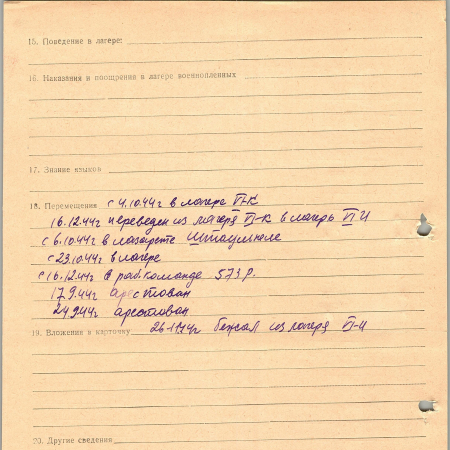 15. Поведение в лагере:
16. Наказания и поощрения в лагере военнопленных
17. Знание языков
18. Перемещение с 4.10.44г в лагере VI-К
16.12.44г переведен из лагеря VI-К в лагерь VI
с 6.10.44 в лазарете Штаумюле
с 23.10.44 в лагере
с 16.12.44 в раб.команде 573 Р.
17.9.44г арестован
24.9.44г арестован
19. Вложения в карточку бежал из лагеря
20. Другие сведения